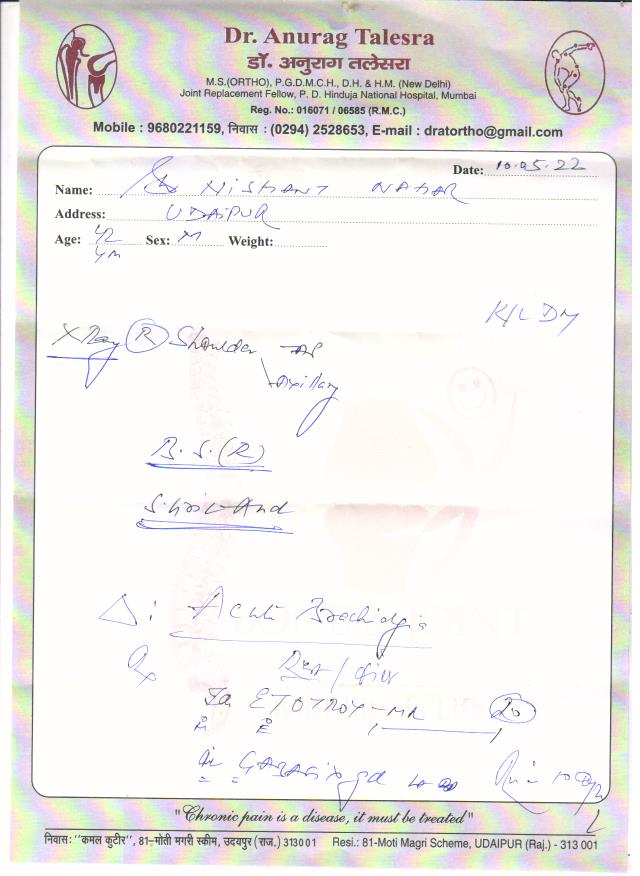 Dr. Anurag Talesra
डॉ. अनुराग तलेसरा
M.S.(ORTHO), P.G.D.M.C.H., D.H. & H.M. (New Delhi)
Joint Replacement Fellow, P. D. Hinduja National Hospital, Mumbai
Reg. No.: 016071 / 06585 (R.M.C.)
Mobile : 9680221159, निवास : (0294) 2528653, E-mail : dratortho@gmail.com
Date: 10.05.22
Name: NISHANT NAHAR
Address: UDAIPUR
Age: 42 Sex: M Weight:
K/C DM
X Ray (R) Shoulder AP
Axillary
B.S.(R)
S. Uric Acid
Δ: Acute Brachialgia
Rx
Rest /
ETOTROY-MR 20
10
"Chronic pain is a disease, it must be treated"
निवास: "कमल कुटीर", 81-मोती मगरी स्कीम, उदयपुर (राज.) 313001 Resi.: 81-Moti Magri Scheme, UDAIPUR (Raj.) - 313 001